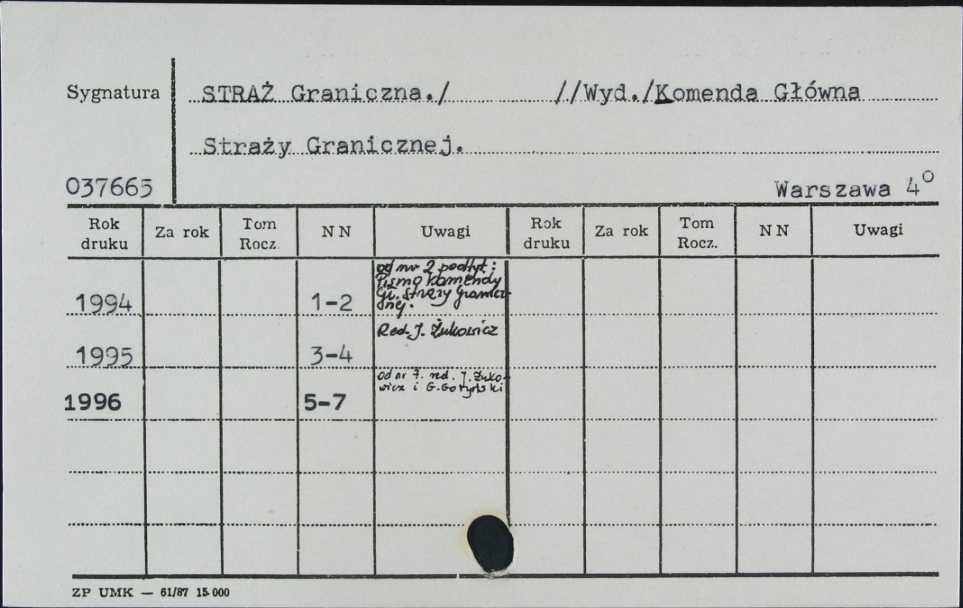 Sygnatura STRAŻ Graniczna./ //Wyd./Komenda Główna
Straży Granicznej.
037665 Warszawa 4°
Rok druku Za rok Tom Rocz. NN Uwagi Rok druku Za rok Tom Rocz. NN Uwagi
od nr 2 podtyt:
Pismo Komendy
Gł. Straży Granicz-
nej.
1994 1-2
Red. J. Żukowicz
1995 3-4
od nr 7. red. J. Żuko-
wicz i G.
1996 5-7
ZP UMK — 61/87 15.000